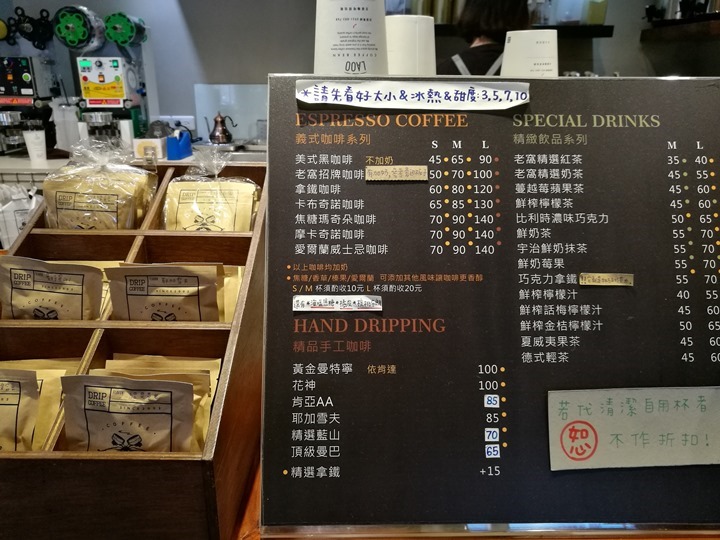 LAOO
COFFEE BEAN
*請先看好大小&冰熱&甜度:3,5,7,10
ESPRESSO COFFEE
義式咖啡系列 S M L
美式黑咖啡 不加奶 45 65 90
老窩招牌咖啡 50 70 100
拿鐵咖啡 60 80 120
卡布奇諾咖啡 65 85 130
焦糖瑪奇朵咖啡 70 90 140
摩卡奇諾咖啡 70 90 140
愛爾蘭威士忌咖啡 70 90 140
以上咖啡均加奶
焦糖/香草/榛果/愛爾蘭 可添加其他風味讓咖啡更香醇
S / M 杯須酌收10元 L 杯須酌收20元
HAND DRIPPING
精品手工咖啡
黃金曼特寧 依肯達 100
花神 100
肯亞AA 85
耶加雪夫 85
精選藍山 70
頂級曼巴 65
精選拿鐵 +15
SPECIAL DRINKS
精緻飲品系列 M L
老窩精選紅茶 35 40
老窩精選奶茶 45 55
蔓越莓蘋果茶 45 60
鮮榨檸檬茶 45 60
比利時濃味巧克力 50 65
鮮奶茶 55 70
宇治鮮奶抹茶 55 70
鮮奶莓果 55 70
巧克力拿鐵 55 70
鮮榨檸檬汁 40 55
鮮榨話梅檸檬汁 45 60
鮮榨金桔檸檬汁 50 65
夏威夷果茶 45 60
德式輕茶 45 60
若代清潔自用杯者
恕 不作折扣!
DRIP
COFFEE
DRIP
COFFEE
DRIP
COFFEE
DRIP
COFFEE